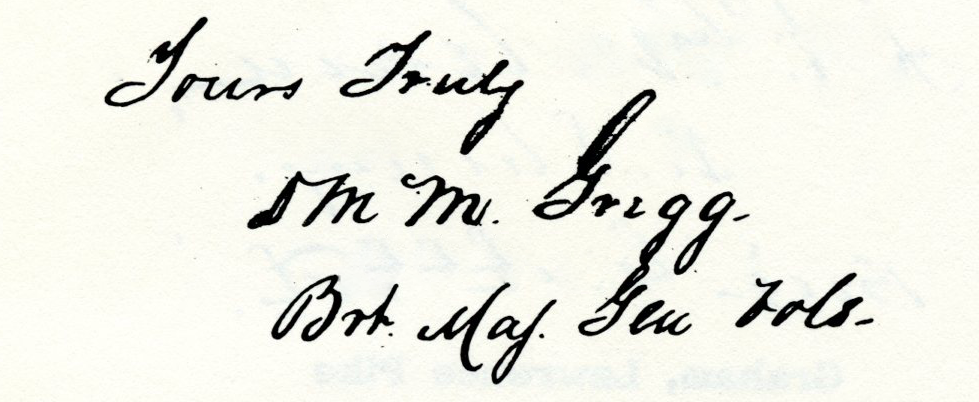 Yours Truly
D M M. Gregg-
Brt. Maj. Gen Vols-
Graham, Lawrence Pike